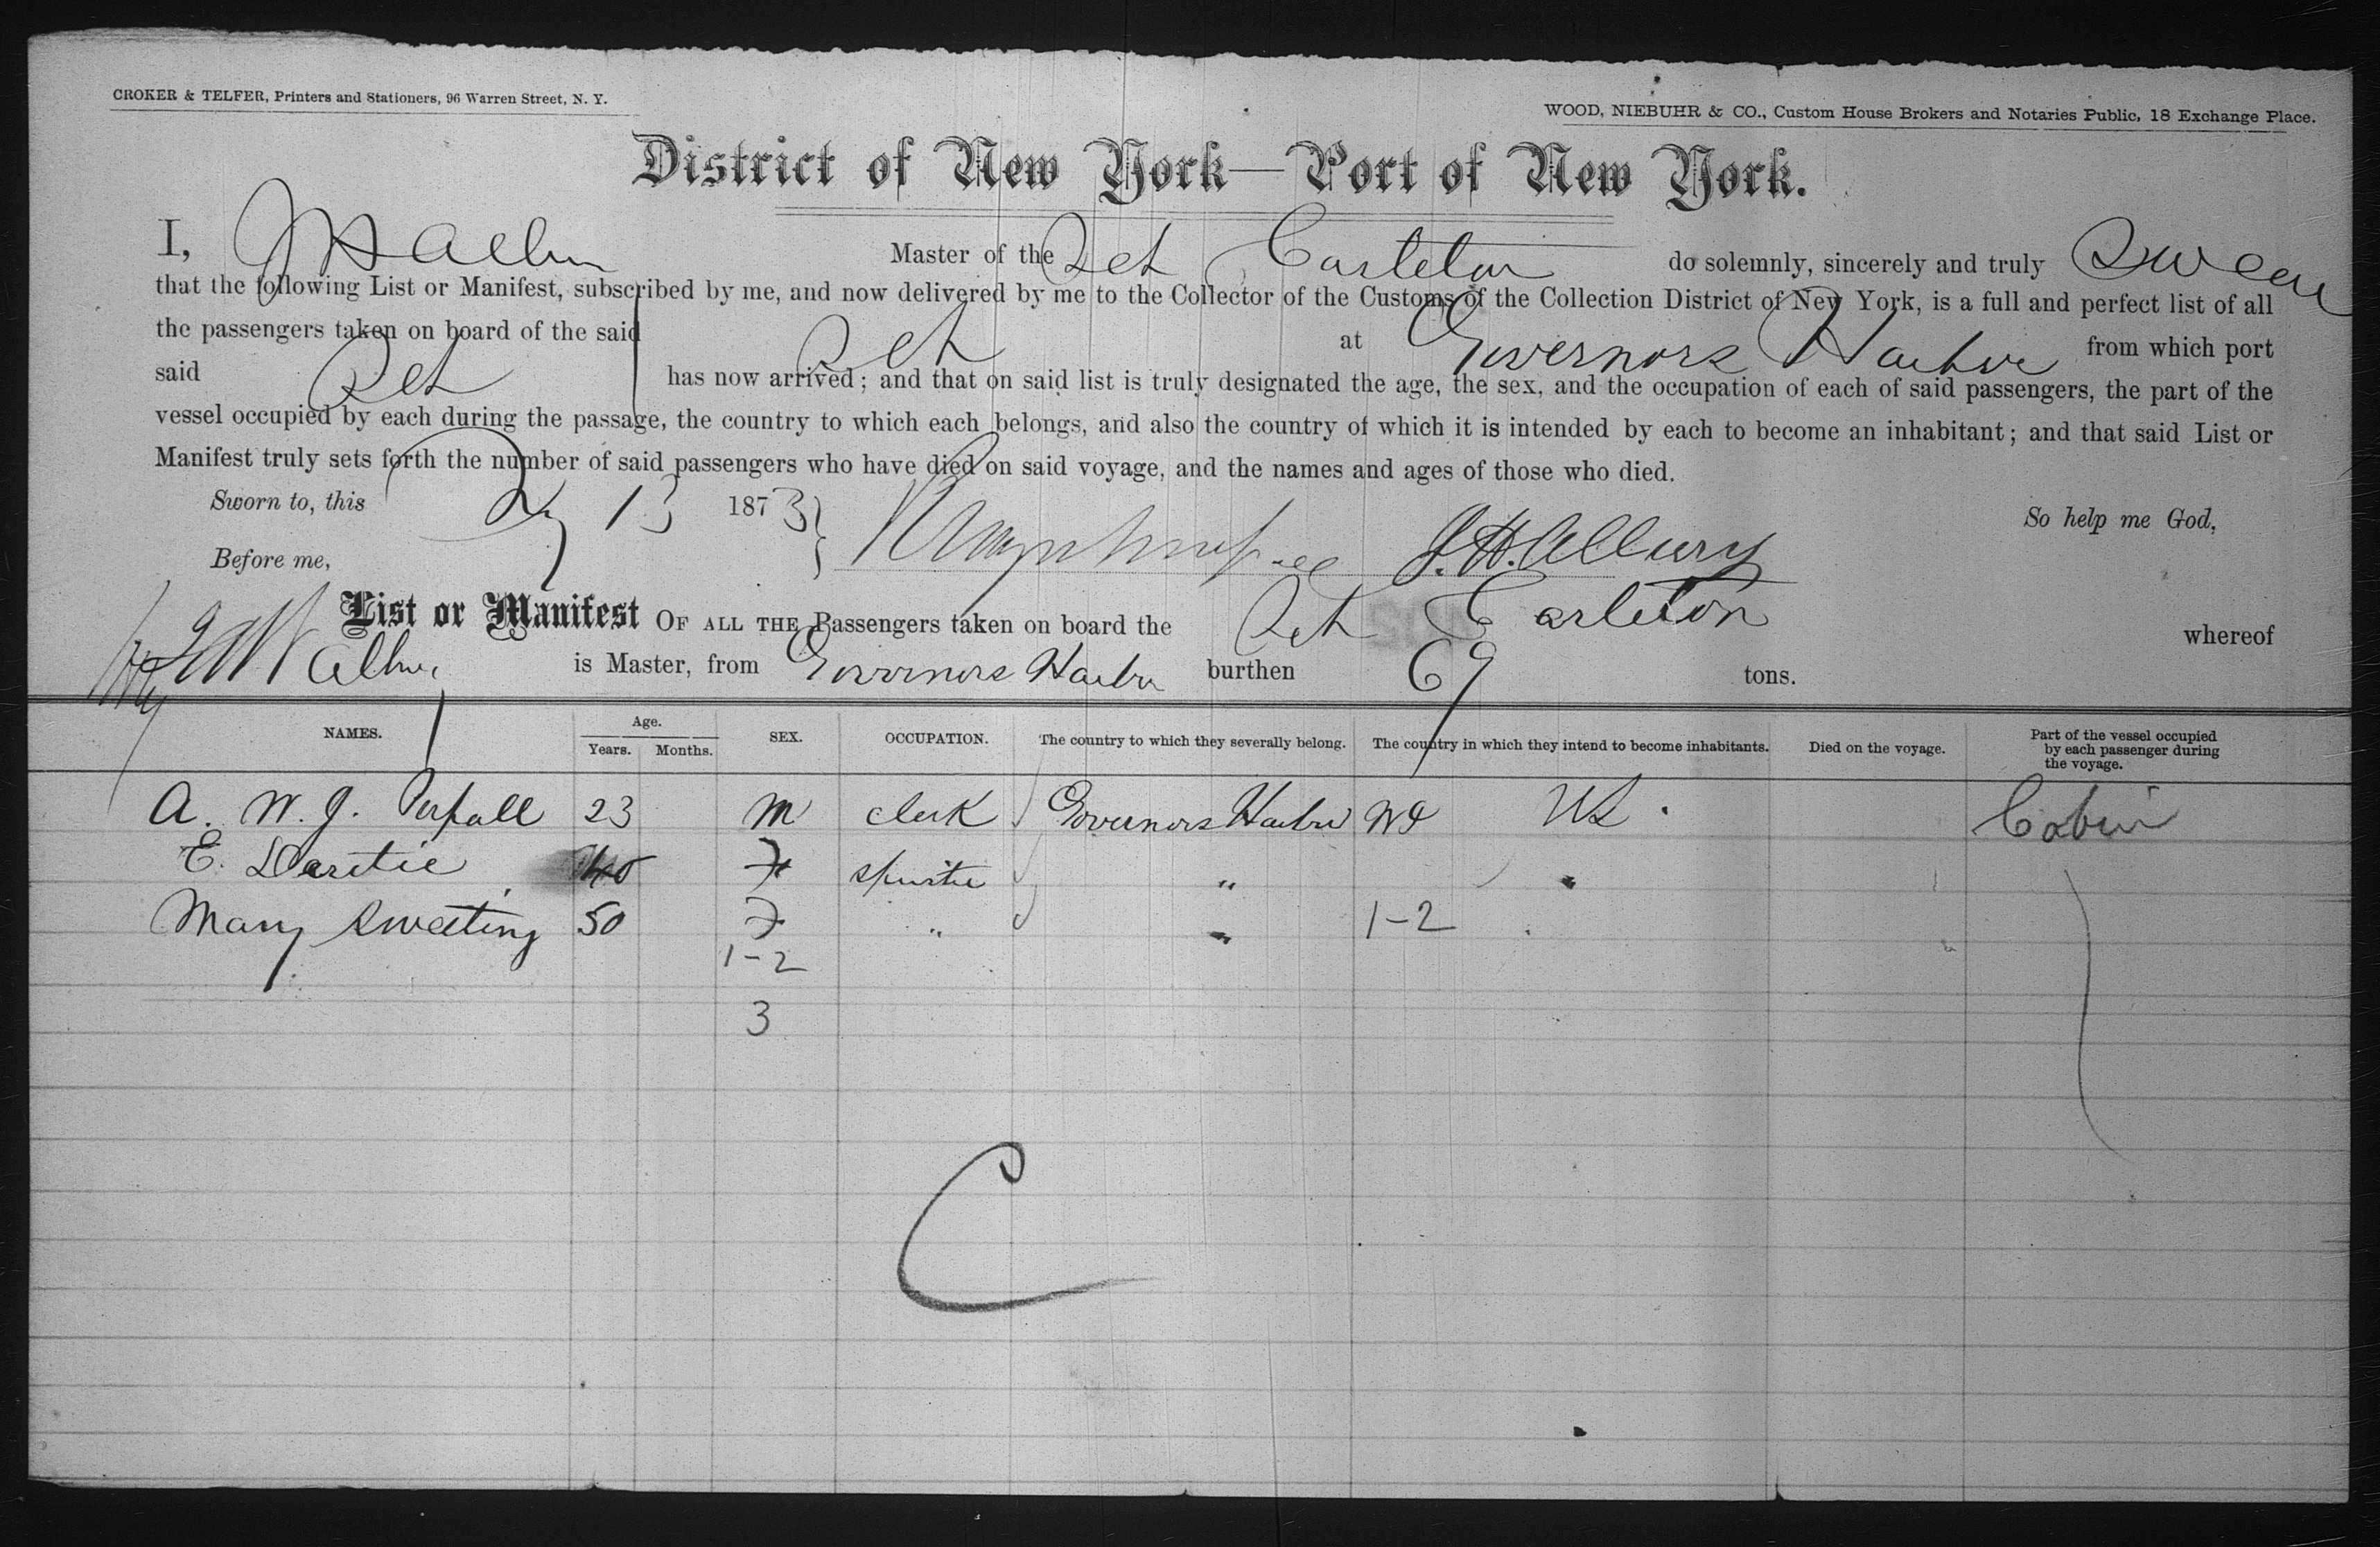 CROKER & TELFER, Printers and Stationers, 96 Warren Street, N. Y.
WOOD, NIEBUHR & CO., Custom House Brokers and Notaries Public, 18 Exchange Place.
District of New York—Port of New York.
I, J H Albury Master of the Sch Carleton do solemnly, sincerely and truly Swear
that the following List or Manifest, subscribed by me, and now delivered by me to the Collector of the Customs of the Collection District of New York, is a full and perfect list of all
the passengers taken on board of the said Sch at Governors Harbor from which port
said Sch has now arrived; and that on said list is truly designated the age, the sex, and the occupation of each of said passengers, the part of the
vessel occupied by each during the passage, the country to which each belongs, and also the country of which it is intended by each to become an inhabitant; and that said List or
Manifest truly sets forth the number of said passengers who have died on said voyage, and the names and ages of those who died.
Sworn to, this 13 1873 } J. H. Albury So help me God,
Before me,
List or Manifest OF ALL THE Passengers taken on board the Sch Carleton whereof
Albury is Master, from Governors Harbor burthen 69 tons.
NAMES. Age. Years. Months. SEX. OCCUPATION. The country to which they severally belong. The country in which they intend to become inhabitants. Died on the voyage. Part of the vessel occupied by each passenger during the voyage.
A. W. J. 23 M clerk Governors Harbor WI US Cabin
E. 40 F " "
Mary Sweeting 50 F " " 1-2
1-2
3
C